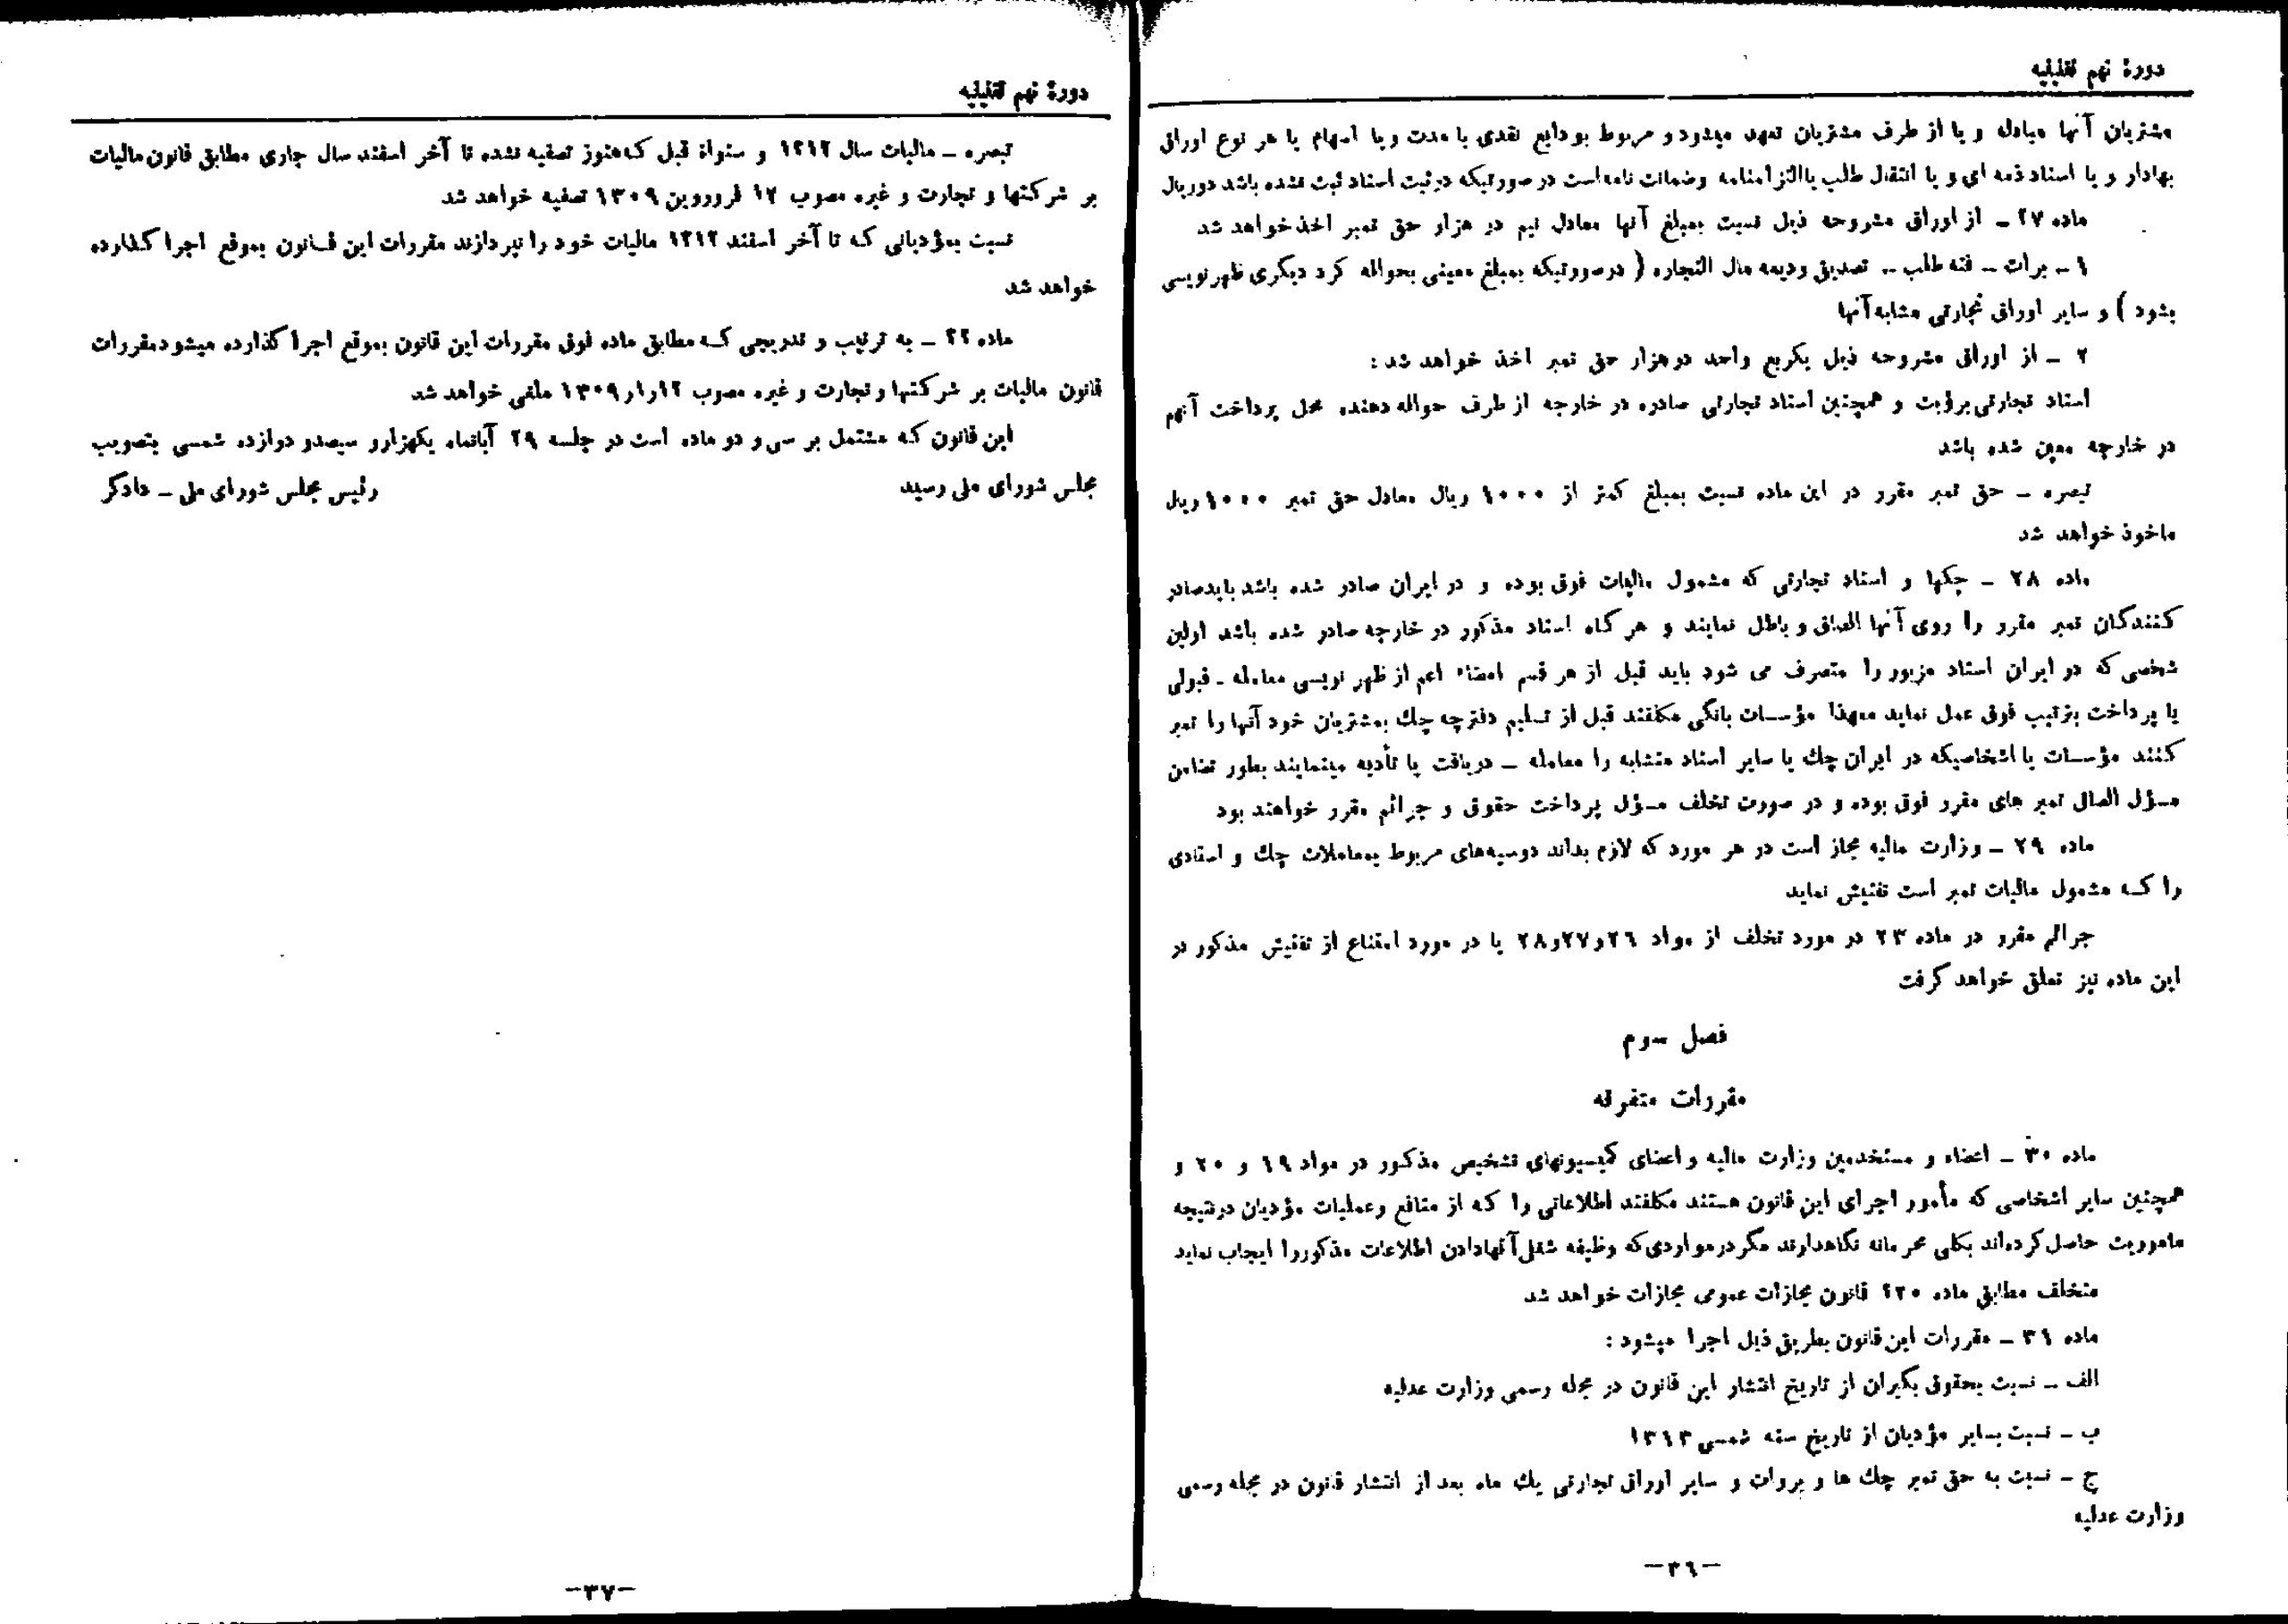 دورهٔ نهم تقنینیه
مشتریان آنها مبادله و یا از طرف مشتریان تعهد میشود و مربوط بودایع نقدی با مدت و یا اسهام یا هر نوع اوراق
بهادار و یا اسناد ذمه ای و یا انتقال طلب یا التزامنامه وضمانت نامه است در صورتیکه در ثبت اسناد ثبت نشده باشد دوریال
ماده ۲۷ ـ از اوراق مشروحه ذیل نسبت بمبلغ آنها معادل نیم در هزار حق تمبر اخذ خواهد شد
۱ ـ برات ـ فته طلب ـ تصدیق ودیعه مال التجاره ( درصورتیکه بمبلغ معینی بحواله کرد دیگری ظهرنویسی
بشود ) و سایر اوراق تجارتی مشابه آنها
۲ ـ از اوراق مشروحه ذیل یکربع واحد در هزار حق تمبر اخذ خواهد شد :
اسناد تجارتی برؤیت و همچنین اسناد تجارتی صادره در خارجه از طرف حواله دهنده محل پرداخت آنهم
در خارجه معین شده باشد
تبصره ـ حق تمبر مقرر در این ماده نسبت بمبلغ کمتر از ۱۰۰۰ ریال معادل حق تمبر ۱۰۰۰ ریال
ماخوذ خواهد شد
ماده ۲۸ ـ چکها و اسناد تجارتی که مشمول مالیات فوق بوده و در ایران صادر شده باشد بایدصادر
کنندگان تمبر مقرر را روی آنها الصاق و باطل نمایند و هر گاه اسناد مذکور در خارجه صادر شده باشد اولین
شخصی که در ایران اسناد مزبور را متصرف می شود باید قبل از هر قسم امضاء اعم از ظهر نویسی معامله ـ قبولی
یا پرداخت بترتیب فوق عمل نماید معهذا مؤسسات بانکی مکلفند قبل از تسلیم دفترچه چك بمشتریان خود آنها را تمبر
کنند مؤسسات یا اشخاصیکه در ایران چك یا سایر اسناد متشابه را معامله ـ دریافت یا تأدیه مینمایند بطور تضامن
مسؤل الصال تمبر های مقرر فوق بوده و در صورت تخلف مسؤل پرداخت حقوق و جرائم مقرر خواهند بود
ماده ۲۹ ـ وزارت مالیه مجاز است در هر مورد که لازم بداند دوسیه‌های مربوط بمعاملات چك و اسنادی
را که مشمول مالیات تمبر است تفتیش نماید
جرائم مقرر در ماده ۲۳ در مورد تخلف از مواد ۲۶و۲۷و۲۸ یا در مورد امتناع از تفتیش مذکور در
این ماده نیز تعلق خواهد گرفت
فصل سوم
مقررات متفرقه
ماده ۳۰ ـ اعضاء و مستخدمین وزارت مالیه و اعضای کمیسیونهای تشخیص مذکور در مواد ۱۹ و ۲۰ و
همچنین سایر اشخاصی که مأمور اجرای این قانون هستند مکلفند اطلاعاتی را که از منافع وعملیات مؤدیان درنتیجه
ماموریت حاصل کرده‌اند بکلی محرمانه نگاهدارند مگر درمواردی که وظیفه شغل آنهادادن اطلاعات مذکوررا ایجاب نماید
متخلف مطابق ماده ۱۳۰ قانون مجازات عمومی مجازات خواهد شد
ماده ۳۱ ـ مقررات این قانون بطریق ذیل اجرا میشود :
الف ـ نسبت بحقوق بگیران از تاریخ انتشار این قانون در مجله رسمی وزارت عدلیه
ب ـ نسبت بسایر مؤدیان از تاریخ سنه شمسی ۱۳۱۳
ج ـ نسبت به حق تمبر چك ها و بروات و سایر اوراق تجارتی یك ماه بعد از انتشار قانون در مجله رسمی
وزارت عدلیه
ـ۳۶ـ
دورهٔ نهم تقنینیه
تبصره ـ مالیات سال ۱۳۱۲ و سنواة قبل که هنوز تصفیه نشده تا آخر اسفند سال جاری مطابق قانون مالیات
بر شرکتها و تجارت و غیره مصوب ۱۲ فروردین ۱۳۰۹ تصفیه خواهد شد
نسبت بمؤدیانی که تا آخر اسفند ۱۳۱۲ مالیات خود را نپردازند مقررات این قانون بموقع اجرا گذارده
خواهد شد
ماده ۳۲ ـ به ترتیب و تدریجی که مطابق ماده فوق مقررات این قانون بموقع اجرا گذارده میشود مقررات
قانون مالیات بر شرکتها و تجارت و غیره مصوب ۱۲ر۱ر۱۳۰۹ ملغی خواهد شد
این قانون که مشتمل بر سی و دو ماده است در جلسه ۲۹ آبانماه یکهزارو سیصدو دوازده شمسی بتصویب
مجلس شورای ملی رسید رئیس مجلس شورای ملی ـ دادگر
ـ۳۷ـ